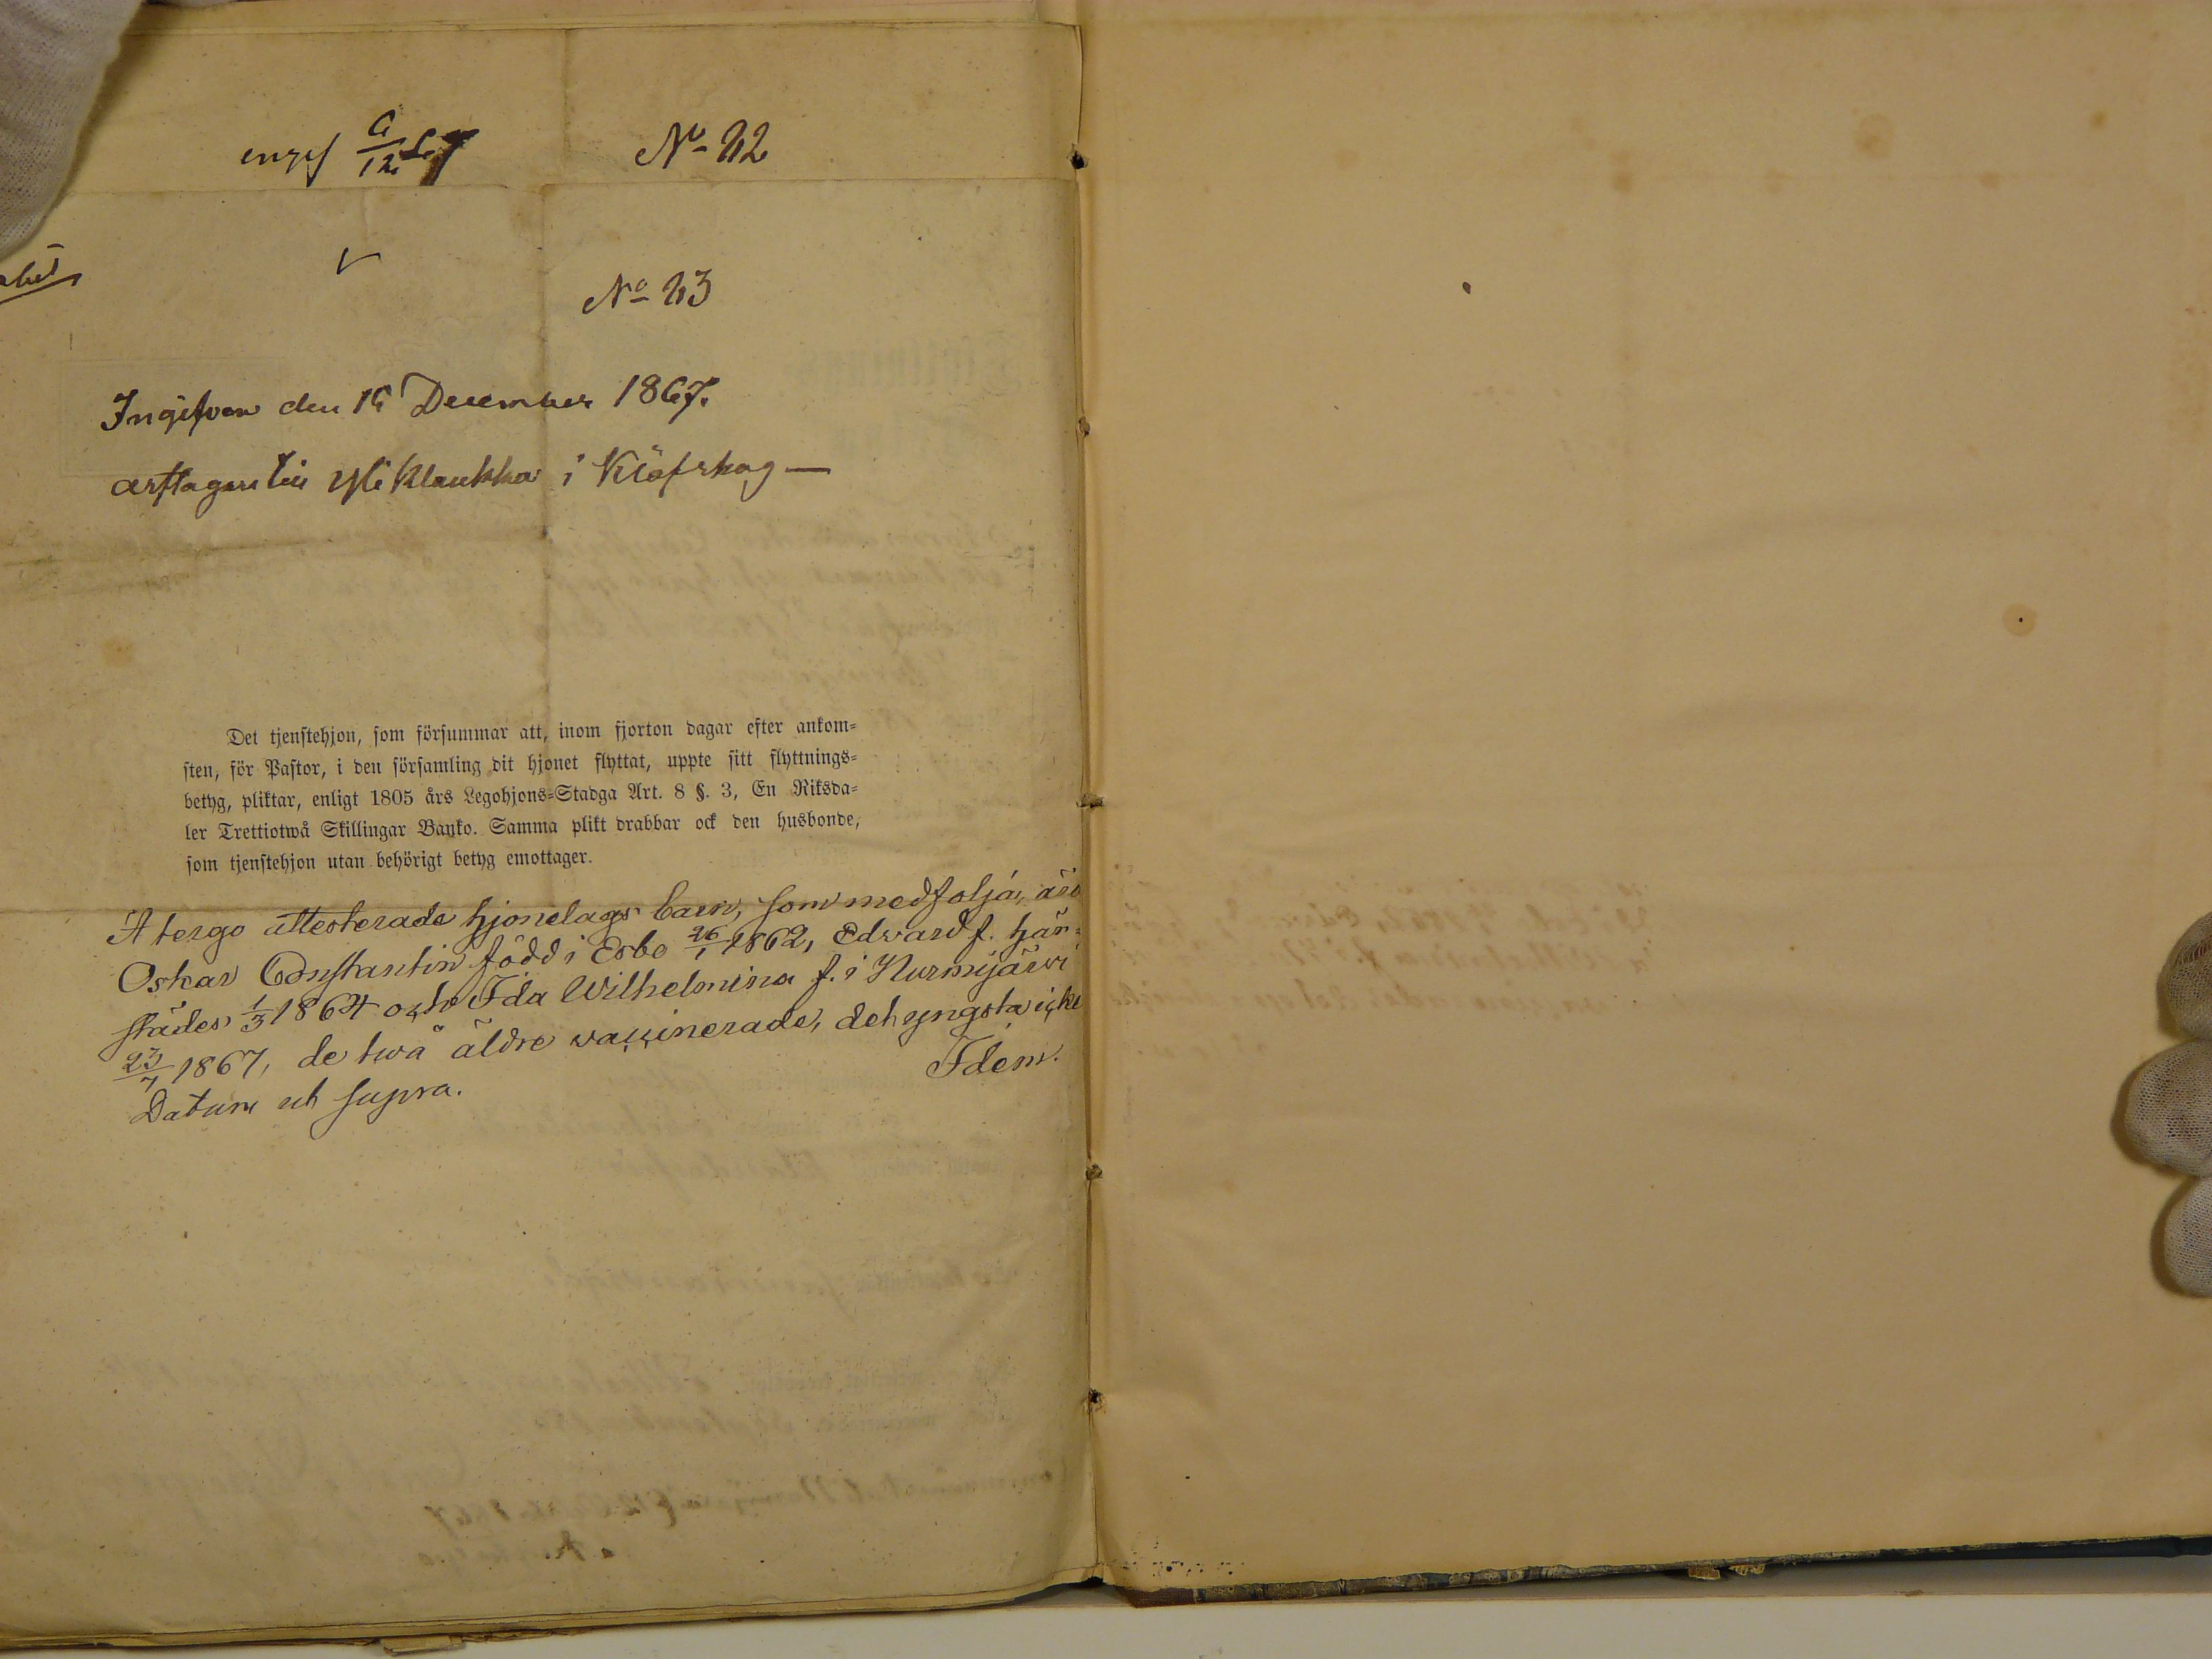 N:o 42
N:o 43
Ingifven den 15 December 1867.
i Klöfskog —
Det tjenstehjon, som försummar att, inom fjorton dagar efter ankom-
sten, för Pastor, i den församling dit hjonet flyttat, uppte sitt flyttnings-
betyg, pliktar, enligt 1805 års Legohjons-Stadga Art. 8 §. 3, En Riksda-
ler Trettiotwå Skillingar Banko. Samma plikt drabbar ock den husbonde,
som tjenstehjon utan behörigt betyg emottager.
A tergo attesterade hjonelags barn, som medfölja, äro
Oskar Constantin född i Esbo 26/1 1862, Edvard f. här-
städes 1/3 1864 och Ida Wilhelmina f. i Nurmijärvi
23/7 1867, de twå äldre vaccinerade, det yngsta icke
Datum ut supra. Idem.